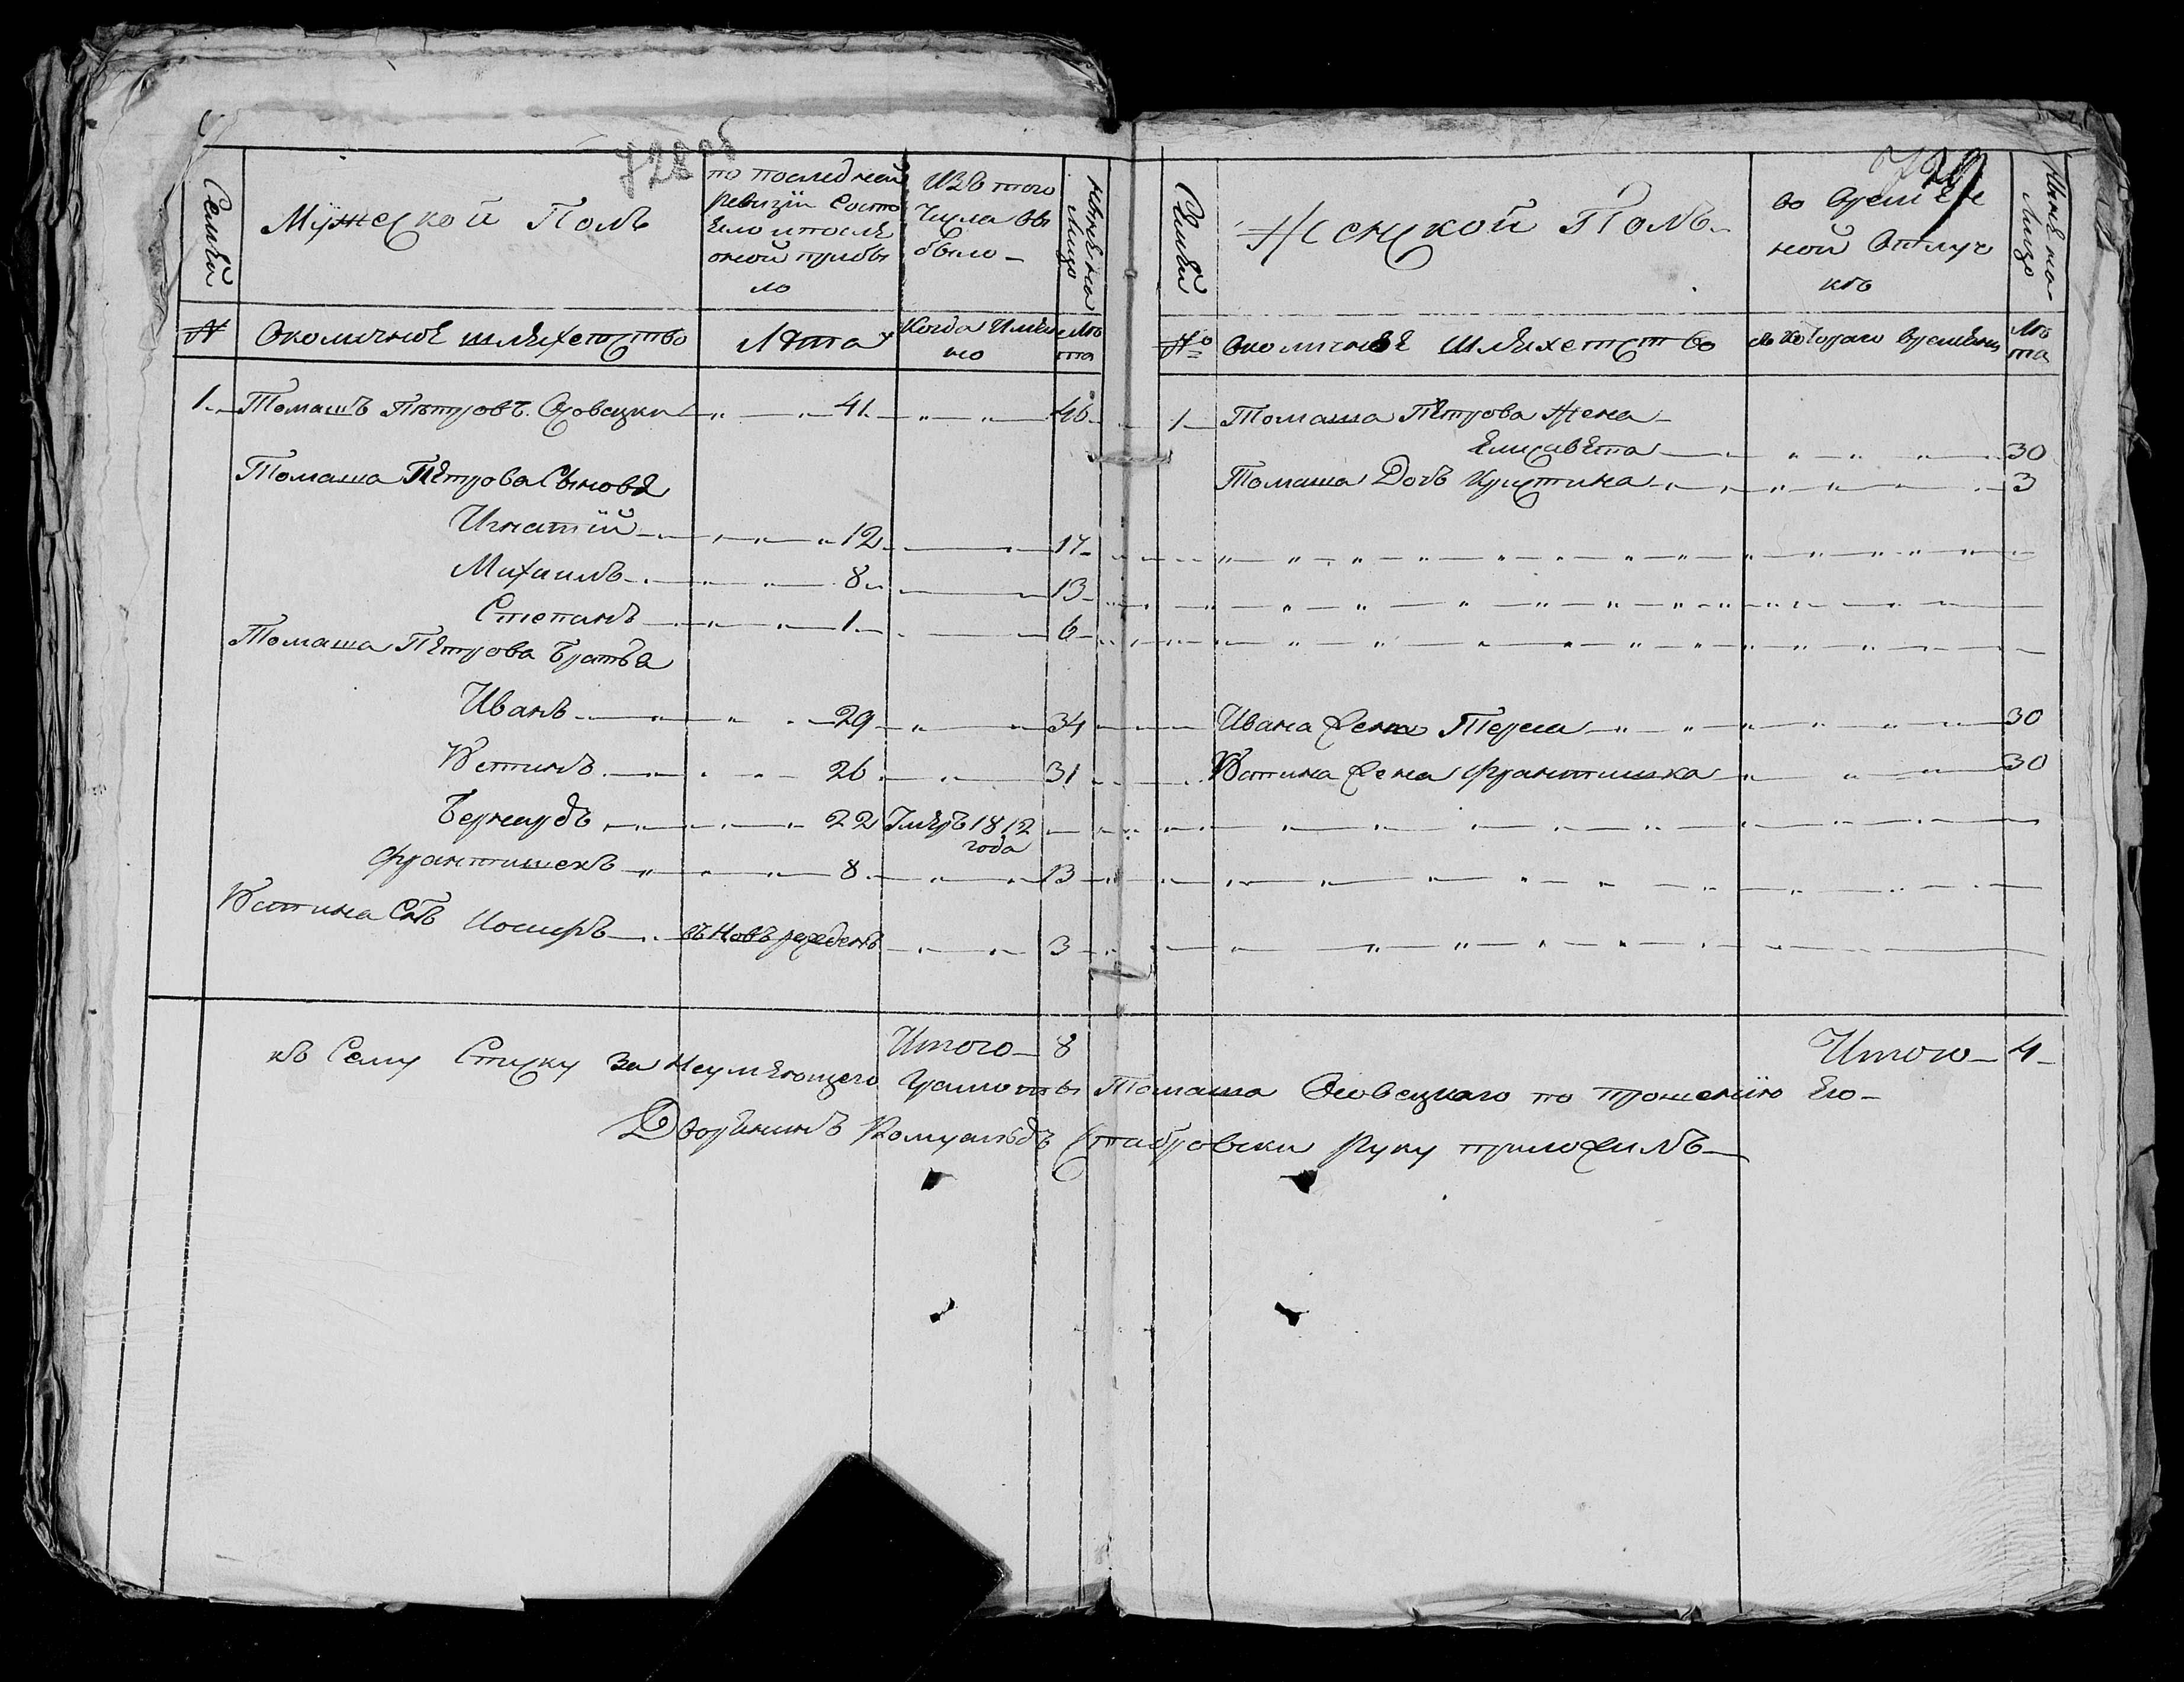 728 об
Семьи
Мужеской Полъ
по последней
ревизіи состо
яло и после
оной прибы
ло
Изъ того
числа вы
было
Ныне на
лицо
№
Околичное шляхетство
Лѣта
Когда Имян
но
Лѣ
та
1. Томашъ Петровъ Осовецки 41 46
Томаша Петрова Сыновя
Игнатій 12 17
Михаилъ 8 13
Степанъ 1 6
Томаша Петрова Братья
Иванъ 29 34
Устинъ 26 31
Бернардъ 22 Умеръ 1812
года
Франтишекъ 8 13
Устина Сынъ Иосифъ въ Новъ рожденъ 3
Итого 8
729
Семьи
Женской Полъ
во времен
ной отлуч
къ
Ныне на
Лицо
№
Околичное шляхетство
съ которого времени
Лѣ
та
1 Томаша Петрова Жена
Елисавета 30
Томаша Дочь Кристина 3
Ивана Жена Тереса 30
Устина Жена Франтишка 30
Итого 4
къ Сему Списку за неумеющего грамоты Томаша Осовецкаго по прошенію Его
Дворянинъ Ромуальдъ Стабровски руку приложилъ